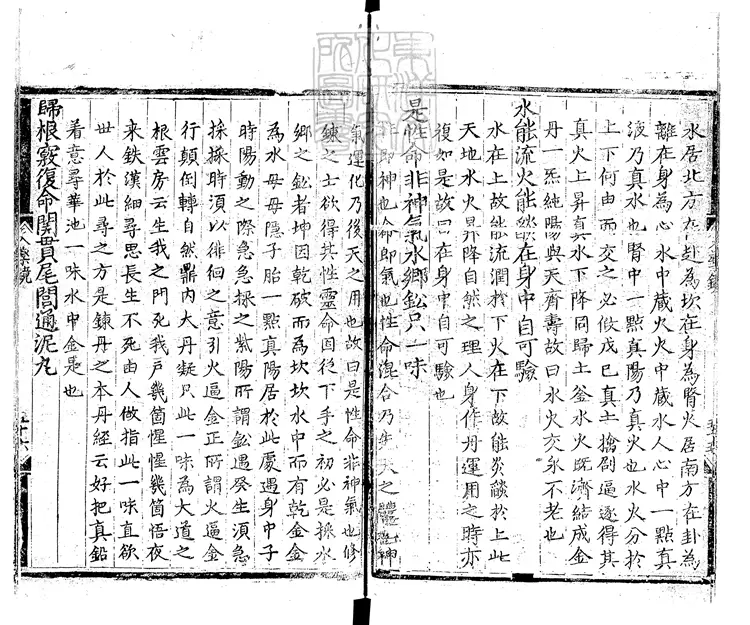 水居北方在卦為坎在身為腎火居南方在卦為
離在身為心水中藏火火中藏水人心中一點真
液乃真水也腎中一點真陽乃真火也水火分於
上下何由而交之必假戊己真土擒制逼逐得其
真火上昇真水下降同歸土釜水火既濟結成金
丹一炁純陽與天齊壽故曰水火交永不老也
水能流火能燄在身中自可驗
水在上故能流潤於下火在下故能炎燄於上此
天地水火昇降自然之理人身作丹運用之時亦
復如是故曰在身中自可驗也
是性命非神氣水鄉鉛只一味
性即神也命即氣也性命混合乃先天之體也神
氣運化乃後天之用也故曰是性命非神氣也修
鍊之士欲得其性靈命固從下手之初必是採水
鄉之鉛者坤因乾破而為坎坎水中而有乾金金
為水母母隱子胎一點真陽居於此處遇身中子
時陽動之際急急採之紫陽所謂鉛遇癸生須急
採採時須以徘徊之意引火逼金正所謂火逼金
行顛倒轉自然鼎內大丹凝只此一味為大道之
根雲房云生我之門死我戶幾箇惺惺幾箇悟夜
來鉄漢細尋思長生不死由人做指此一味直欲
世人於此尋之方是鍊丹之本丹經云好把真鉛
着意尋華池一味水中金是也
歸根竅復命關貫尾閭通泥丸
入藥鏡